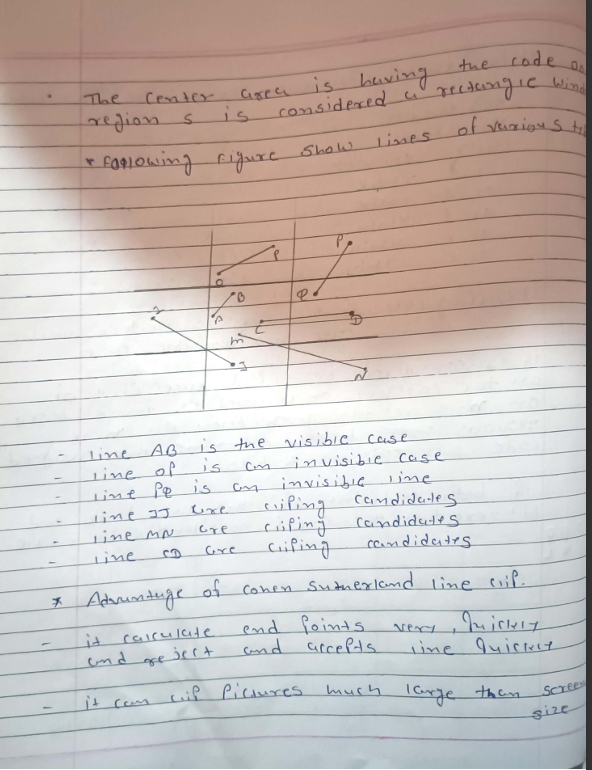 . The center area is having the code 
region s is considered a rectangle wind
* Following Figure show lines of various
P
P
O
B
Q
I
A
C
D
m
J
N
- line AB is the visible case
- line OP is an invisible case
- line PQ is an invisible line
- line IJ are cliping candidates
- line MN are cliping candidates
- line CD are cliping candidates
* Advantage of cohen sutherland line clip.
- it calculate end points very, quickly
and reject and accepts line quickly
- it can clip Pictures much large than screen
size